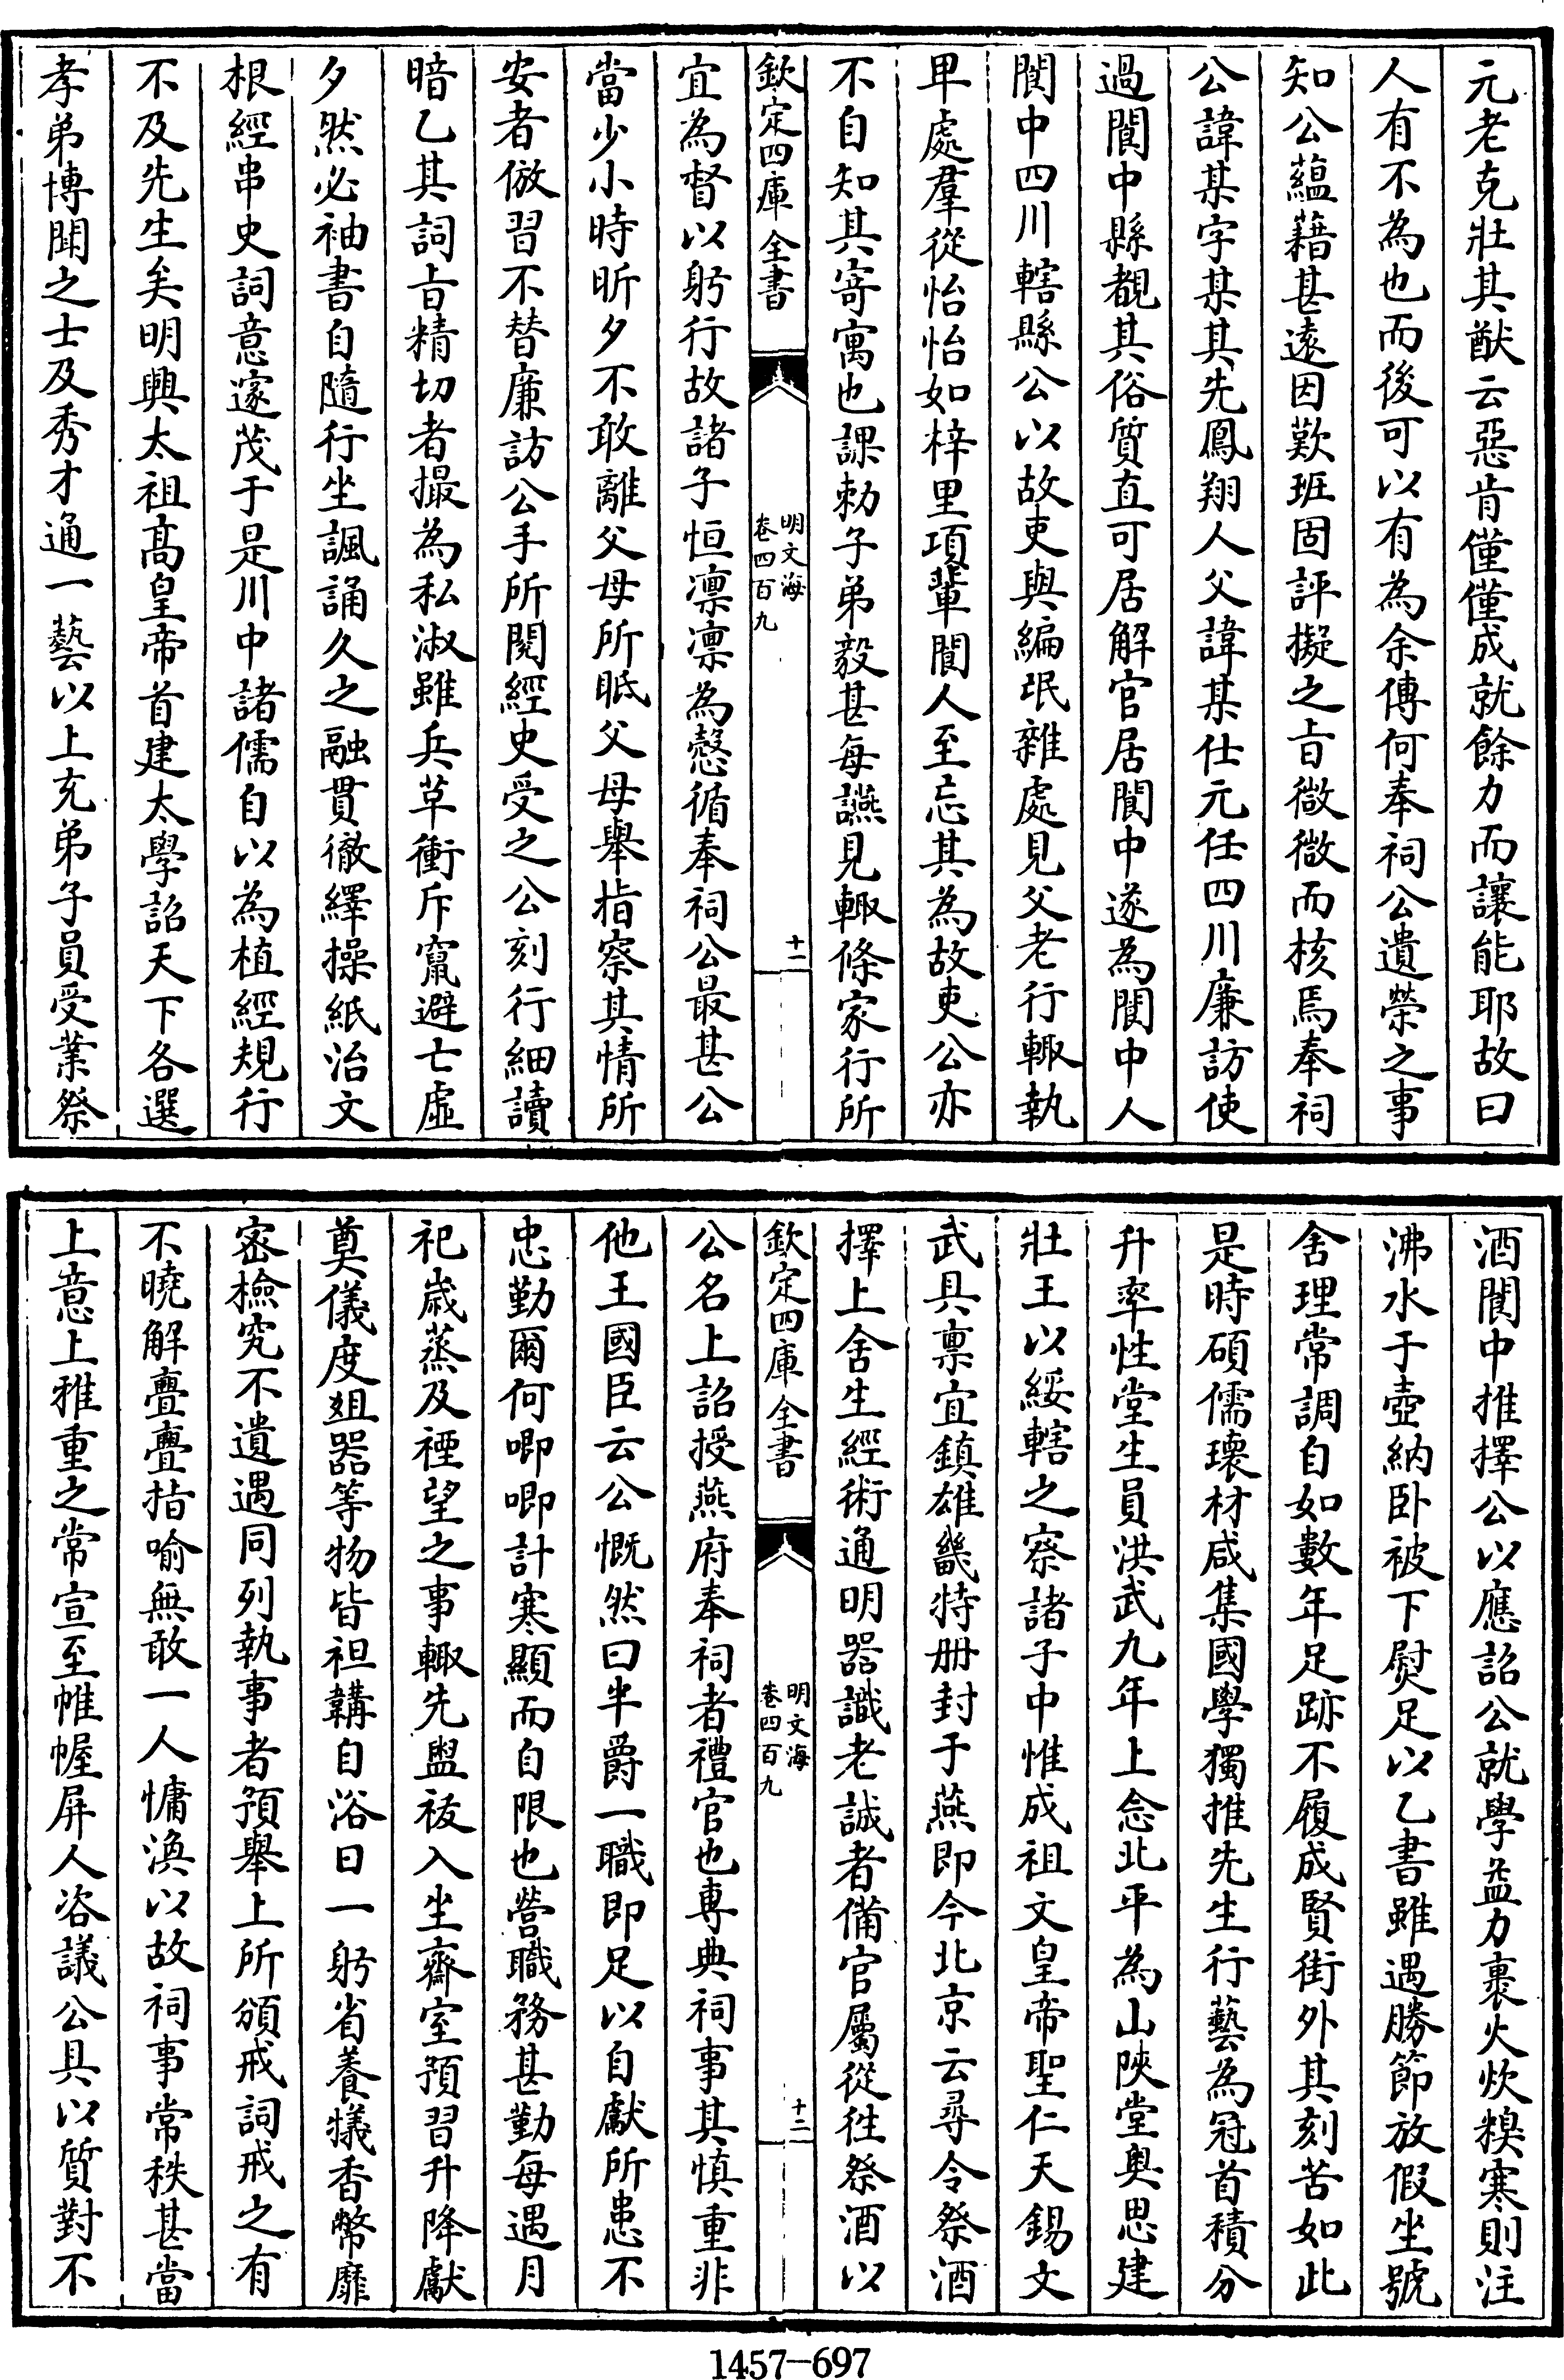 元老克壯其猷云惡肯僅僅成就餘力而讓能耶故曰
人有不為也而後可以有為余傳何奉祠公遺榮之事
知公蘊藉甚遠因歎班固評擬之㫖微微而核焉奉祠
公諱某字某其先鳳翔人父諱某仕元任四川廉訪使
過閬中縣覩其俗質直可居解官居閬中遂為閬中人
閬中四川轄縣公以故吏與編氓雜處見父老行輙執
卑處羣從怡怡如梓里項輩閬人至忘其為故吏公亦
不自知其寄寓也課勅子弟毅甚每讌見輙條家行所
欽定四庫全書
明文海
卷四百九
十一
宜為督以躬行故諸子恒凛凛為愨循奉祠公最甚公
當少小時昕夕不敢離父母所眡父母舉指察其情所
安者倣習不替廉訪公手所閱經史受之公刻行細讀
暗乙其詞㫖精切者撮為私淑雖兵草衝斥竄避亡虛
夕然必袖書自隨行坐諷誦久之融貫徹繹操紙治文
根經串史詞意邃茂于是川中諸儒自以為植經規行
不及先生矣明興太祖髙皇帝首建太學詔天下各選
孝弟博聞之士及秀才通一藝以上充弟子員受業祭
酒閬中推擇公以應詔公就學益力裹火炊糗寒則注
沸水于壺納卧被下熨足以乙書雖遇勝節放假坐號
舍理常調自如數年足跡不履成賢街外其刻苦如此
是時碩儒瓌材咸集國學獨推先生行藝為冠首積分
升率性堂生員洪武九年上念北平為山陝堂奥思建
壯王以綏轄之察諸子中惟成祖文皇帝聖仁天錫文
武具禀宜鎮雄畿特册封于燕即今北京云尋令祭酒
擇上舍生經術通明器識老誠者備官屬從徃祭酒以
欽定四庫全書
明文海
卷四百九
十二
公名上詔授燕府奉祠者禮官也専典祠事其慎重非
他王國臣云公慨然曰半爵一職即足以自獻所患不
忠勤爾何唧唧計寒顯而自限也營職務甚勤每遇月
祀嵗蒸及禋望之事輙先盥祓入坐齋室預習升降獻
奠儀度爼器等物皆袒韝自浴日一躬省養犧香幣靡
密檢究不遺遇同列執事者預舉上所頒戒詞戒之有
不曉解亹亹指喻無敢一人慵渙以故祠事常秩甚當
上意上雅重之常宣至帷幄屏人咨議公具以質對不
1457—697